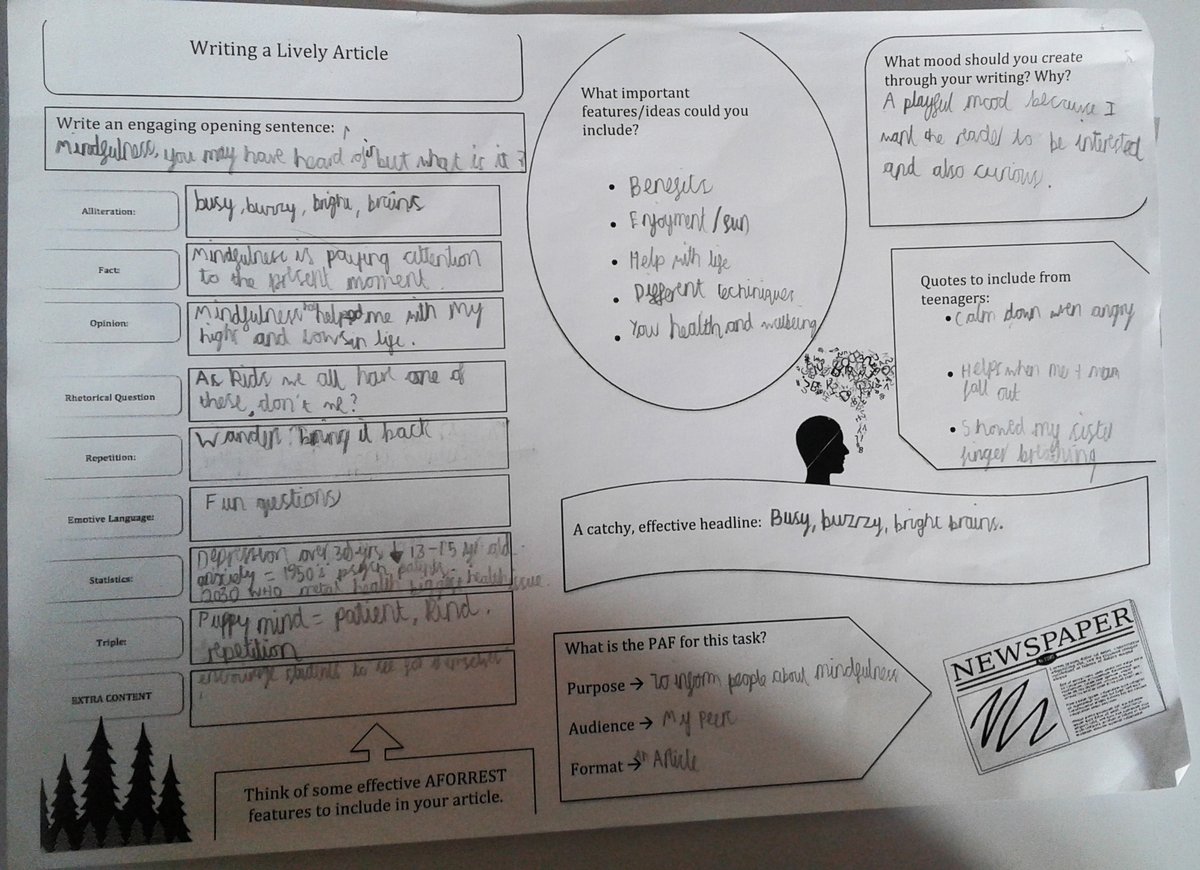 Writing a Lively Article
Write an engaging opening sentence:
Mindfulness, you may have heard of it but what is it?
Alliteration:
busy, buzzy, bright, brains
Fact:
Mindfulness is paying attention
to the present moment.
Opinion:
Mindfulness has helped me with my
highs and lows in life.
Rhetorical Question
As kids we all have one of
these, don't we?
Repetition:
Wander. bring it back
Emotive Language:
Fun questions
Statistics:
Depression over 30 yrs 13-15 yr old
anxiety = 1950's psych patients
2030 WHO metal health biggest health issue.
Triple:
Puppy mind = patient, kind,
repetition
EXTRA CONTENT
encourage students to see for themselves
Think of some effective AFORREST
features to include in your article.
What important
features/ideas could you
include?
• Benefits
• Enjoyment/fun
• Help with life
• Different techiniques
• Your health and wellbeing
What mood should you create
through your writing? Why?
A playful mood because I
want the reader to be interested
and also curious.
Quotes to include from
teenagers:
• Calm down wen angry
• Helps when me + mam
fall out
• Showed my sister
finger breathing
A catchy, effective headline: Busy, buzzzy, bright brains.
What is the PAF for this task?
Purpose → To inform people about mindfulness
Audience → My peer
Format → Article
NEWSPAPER